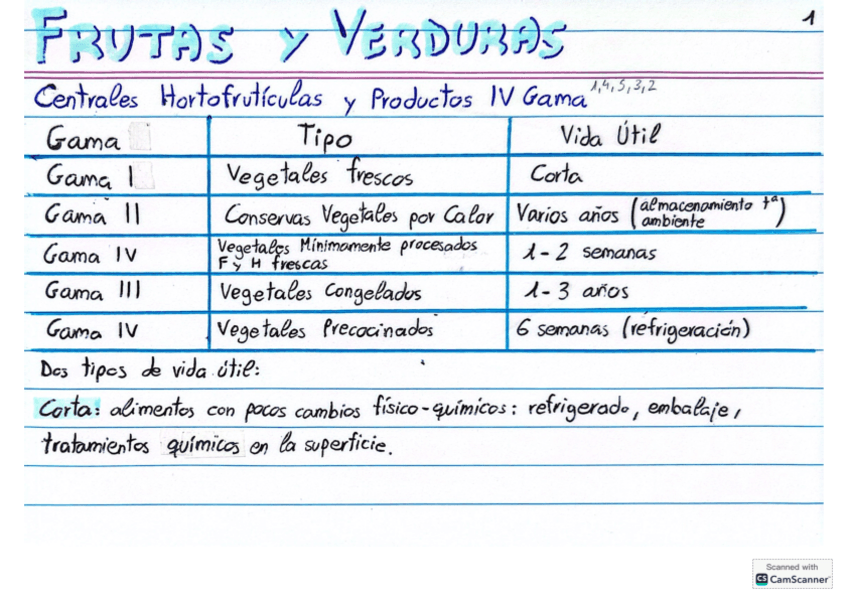 1
FRUTAS y VERDURAS
Centrales Hortofrutículas y Productos IV Gama 1,4,5,3,2
Gama Tipo Vida Útil
Gama I Vegetales frescos Corta
Gama II Conservas Vegetales por Calor Varios años (almacenamiento tª ambiente)
Gama IV Vegetales Mínimamente procesados F y H frescas 1-2 semanas
Gama III Vegetales Congelados 1-3 años
Gama IV Vegetales Precocinados 6 semanas (refrigeración)
Dos tipos de vida útil:
Corta: alimentos con pocos cambios físico-químicos: refrigerado, embalaje,
tratamientos químicos en la superficie.
Scanned with
CS CamScanner